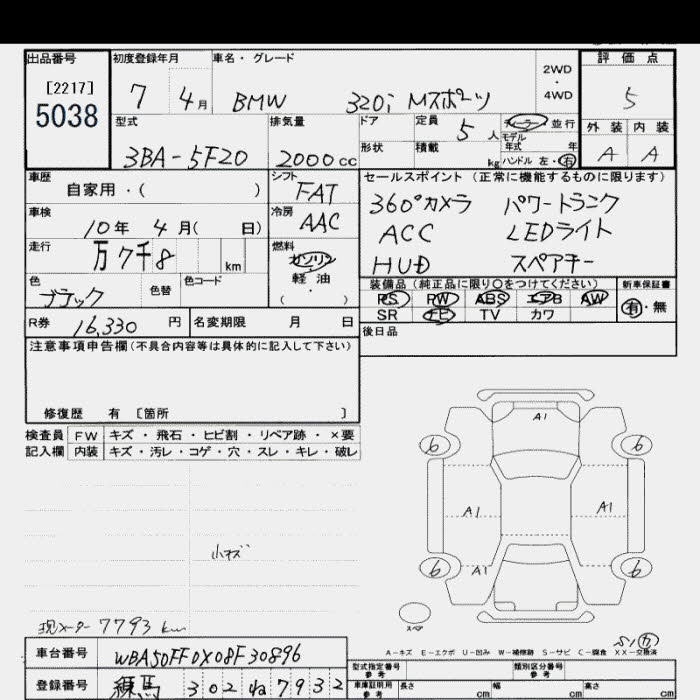 出品番号
[2217]
5038
初度登録年月
7 4月
車名・グレード
BMW 320i Mスポーツ
2WD
・
4WD
評価点
5
型式
3BA-5F20
排気量
2000cc
ドア
形状
定員 5人
積載 kg
ディーラー 並行
モデル年式 年
ハンドル 左・右
外装 内装
A A
車歴
自家用・( )
シフト
FAT
車検
10年 4月( 日)
冷房
AAC
走行
万7千8 km
燃料
ガソリン
・
軽油
・
( )
色
ブラック
色替
色コード
R券 16,330 円
名変期限 月 日
セールスポイント (正常に機能するものに限ります)
360°カメラ パワートランク
ACC LEDライト
HUD スペアキー
装備品 (純正品に限り○をつけてください)
PS PW ABS エアB AW
SR ナビ TV カワ
新車保証書
有・無
後日品
注意事項申告欄(不具合内容等は具体的に記入して下さい)
修復歴 有 [箇所 ]
検査員 FW キズ・飛石・ヒビ割・リペア跡・×要
記入欄 内装 キズ・汚レ・コゲ・穴・スレ・キレ・破レ
小キズ
現メーター 7793 km
A1
6 6
A1 A1
6 6
A1
スペア
A-キズ E-エクボ U-凹み W-補修跡 S-サビ C-腐食 XX-交換済
車台番号 WBA50FF0X08F30896
登録番号 練馬 302 ね 7932
型式指定番号
参考
類別区分番号
参考
車庫証明用
参考
長さ cm 幅 cm 高さ cm